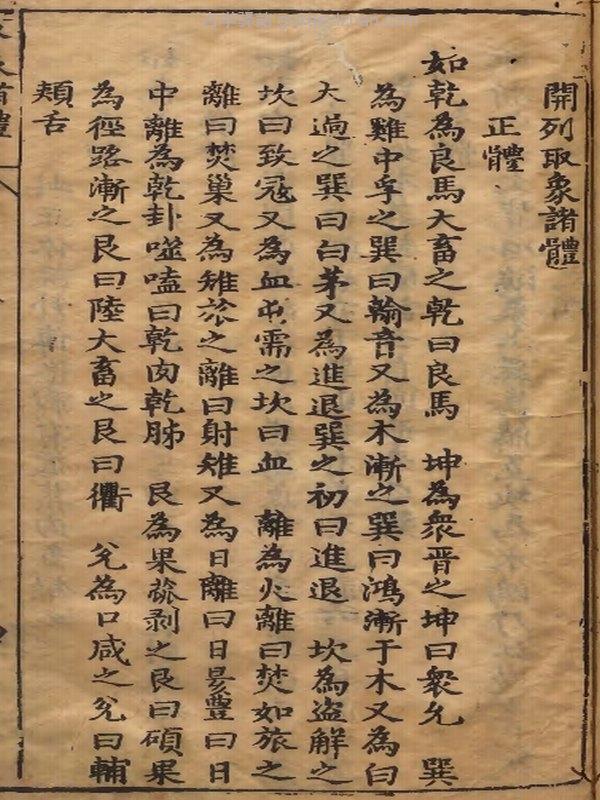 開列取象諸體
正體
如乾為良馬大畜之乾曰良馬　坤為衆晋之坤曰衆允　巽
為雞中孚之巽曰翰音又為木漸之巽曰鴻漸于木又為白
大過之巽曰白茅又為進退巽之初曰進退　坎為盗解之
坎曰致冦又為血屯需之坎曰血　離為火離曰焚如旅之
離曰焚巢又為雉旅之離曰射雉又為日離曰日昃豊曰日
中離為乾卦噬嗑曰乾肉乾胏　艮為果蓏剥之艮曰碩果
為徑路漸之艮曰陸大畜之艮曰衢　兊為口咸之兊曰輔
頰舌